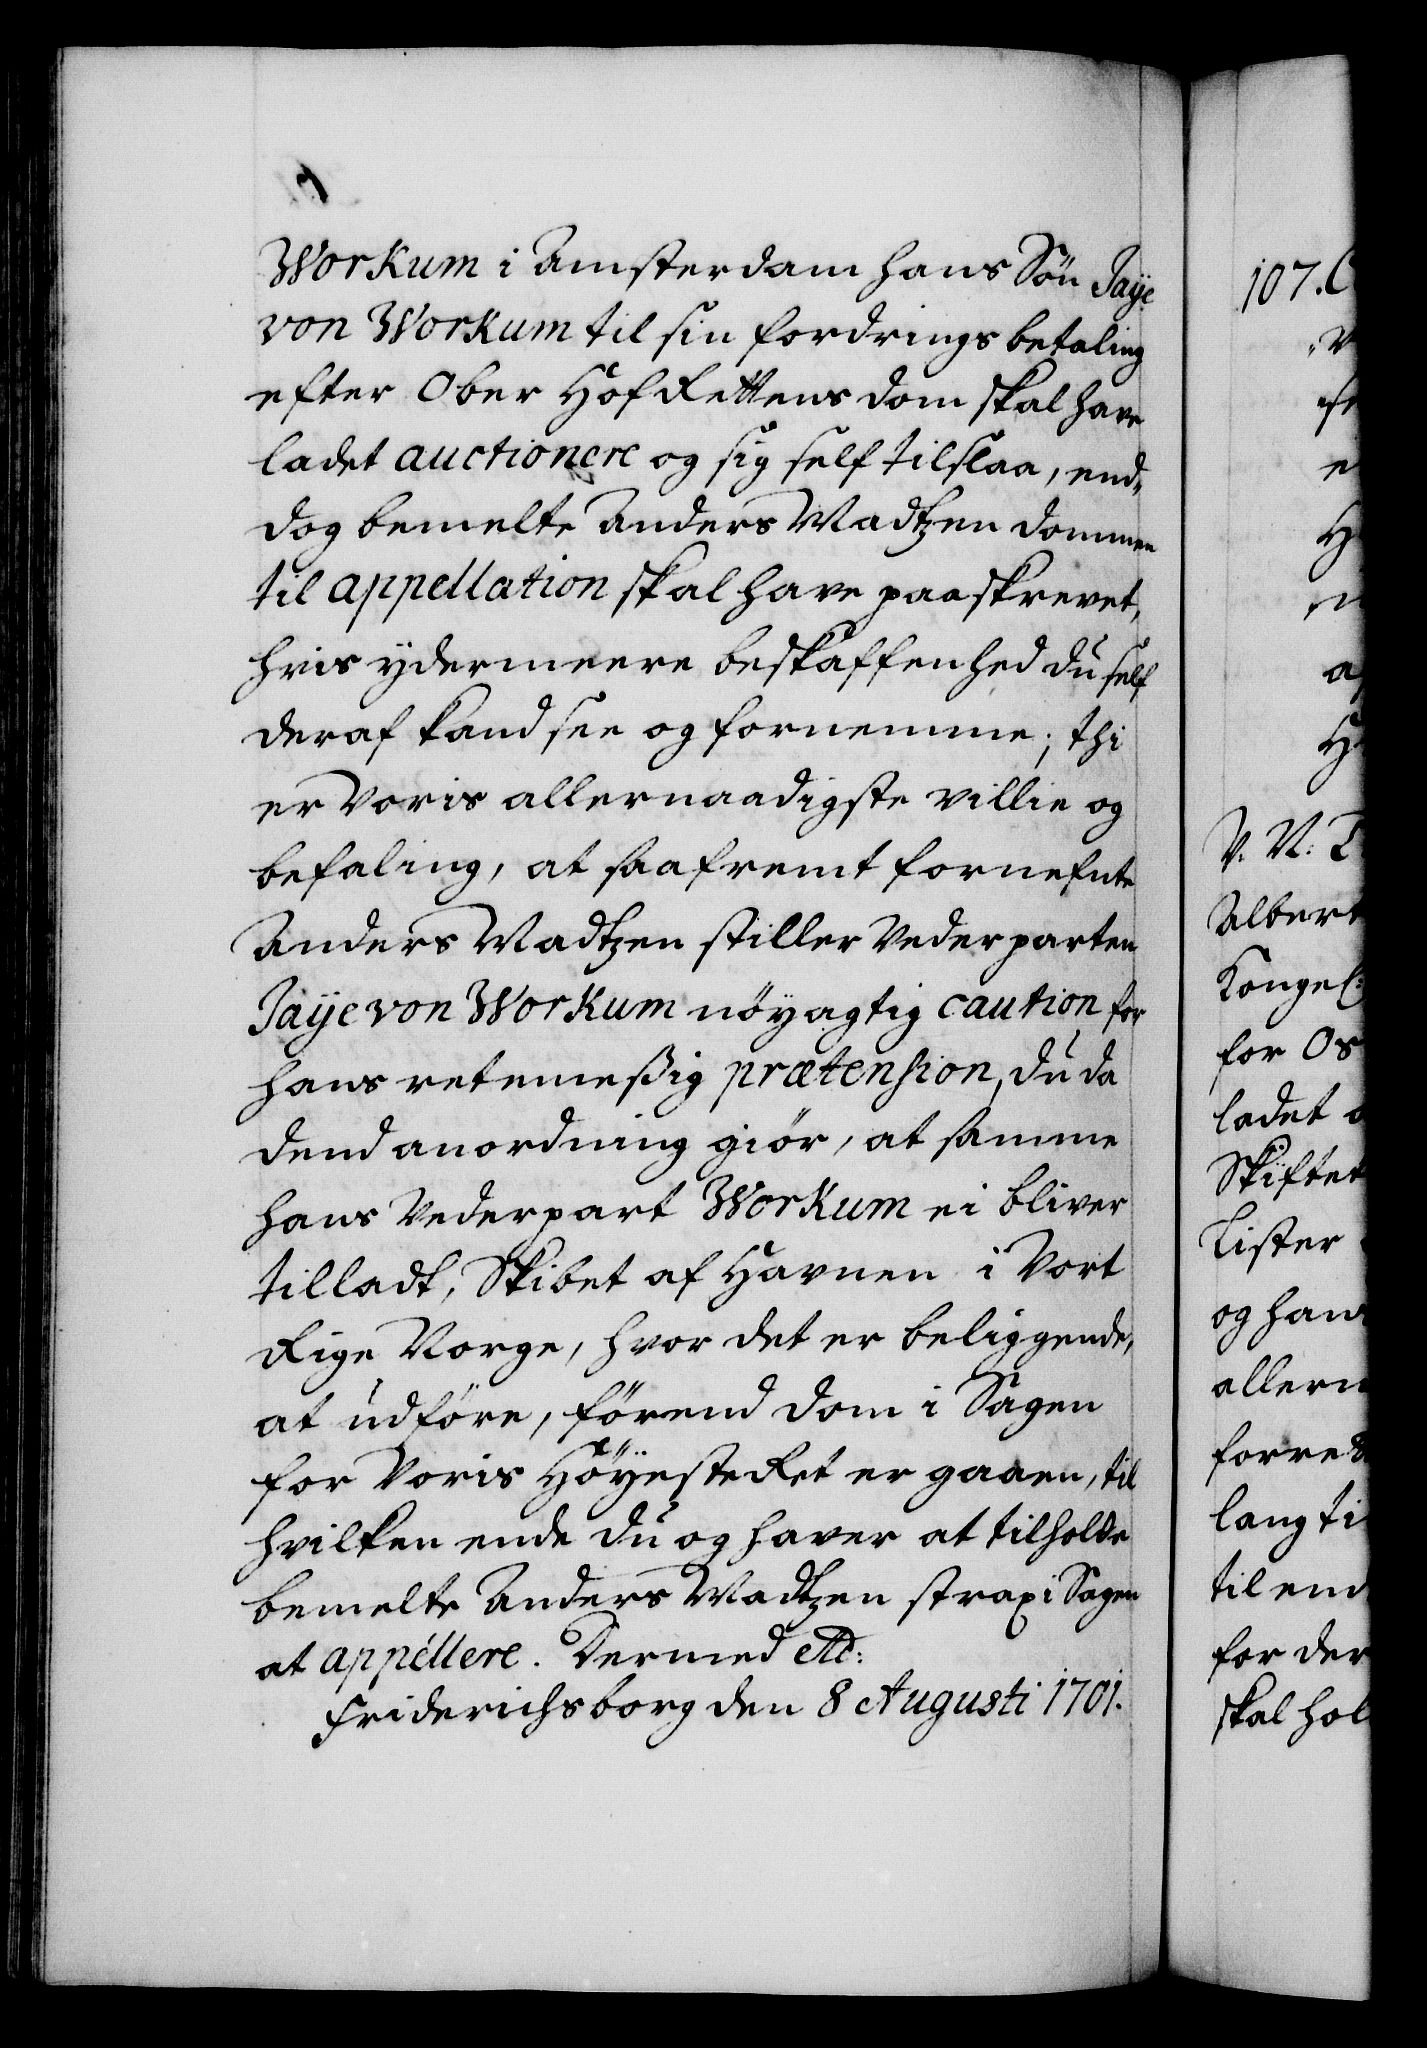 Workum i Amsterdam hans Søn Jaÿe
von Workum til sin fordrings betaling
efter Ober Hof Rettens dom skal have
ladet auctionere og sig self tilslaa, end-
dog bemelte Anders Madtzen dommen
til appellation skal have paaskrevet,
hvis ydermeere beskaffenhed du self
deraf kand see og fornemme; thi
er Voris allernaadigste villie og
befaling, at saafremt fornefnte
Anders Madtzen stiller Vederparten
Jaÿe von Workum nöyagtig caution for
hans retemeßig prætension, du da
dend anordning giör, at samme
hans Vederpart Workum ei bliver
tilladt, Skibet af Havnen i Vort
Rige Norge, hvor det er beliggende,
at udföre, förend dom i Sagen
for Voris Höÿeste Ret er gaaen, til
hvilken ende du og haver at tilholde
bemelte Anders Madtzen strax i Sagen
at appellere. Dermed etc:
Friderichsborg den 8 Augusti 1701.
107. C
H
V. N. T
Albert
Kongel:
for Os
ladet
Skiftet
Lister
og hans
allern
forre
lang ti
til end
for der
skal hol